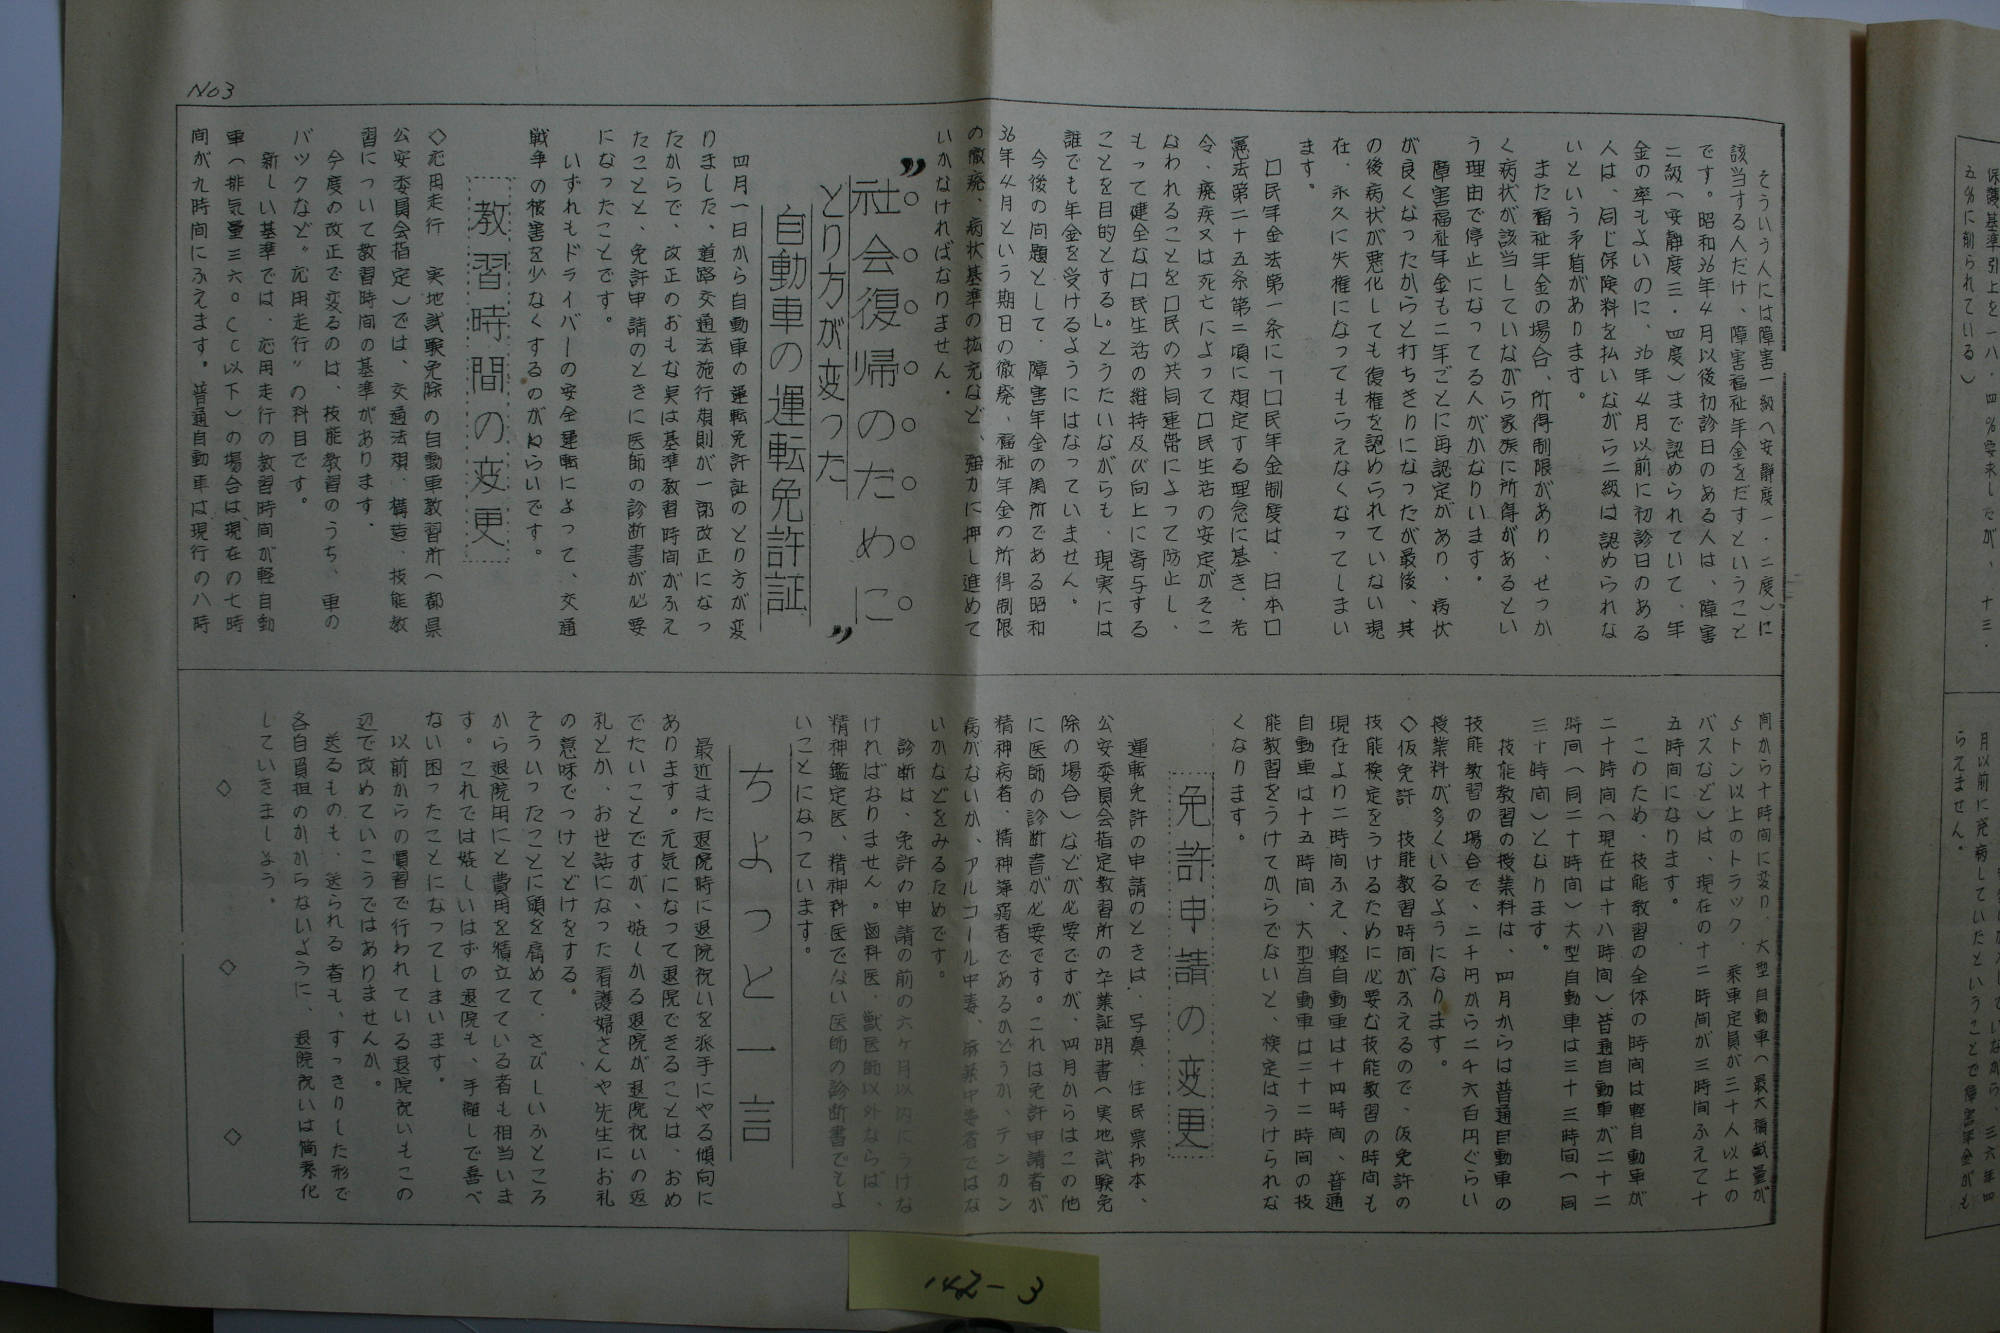 No3
そういう人には障害一級(安静度一・二度)に
該当する人だけ、障害福祉年金をだすということ
です。昭和36年4月以後初診日のある人は、障害
二級(安静度三・四度)まで認められていて、年
金の率もよいのに、36年4月以前に初診日のある
人は、同じ保険料を払いながら二級は認められな
いという矛盾があります。
また福祉年金の場合、所得制限があり、せっか
く病状が該当していながら家族に所得があるとい
う理由で停止になってる人がかなりいます。
障害福祉年金も二年ごとに再認定があり、病状
が良くなったからと打ちきりになったが最後、其
の後病状が悪化しても復権を認められていない現
在、永久に失権になってもらえなくなってしまい
ます。
口民年金法第一条に「口民年金制度は、日本口
憲法第二十五条第二項に規定する理念に基き、老
令、廃疾又は死亡によって口民生活の安定がそこ
なわれることを口民の共同連帯によって防止し、
もって健全な口民生活の維持及び向上に寄与する
ことを目的とする」。とうたいながらも、現実には
誰でも年金を受けるようにはなっていません。
今後の問題として、障害年金の関所である昭和
36年4月という期日の徹廃、福祉年金の所得制限
の徹廃、病状基準の拡充など、強力に押し進めて
いかなければなりません.
〝社会復帰のために〟
とり方が変った
自動車の運転免許証
四月一日から自動車の運転免許証のとり方が変
りました、道路交通法施行規則が一部改正になっ
たからで、改正のおもな点は基準教習時間がふえ
たことと、免許申請のときに医師の診断書が必要
になったことです。
いずれもドライバーの安全運転によって、交通
戦争の被害を少なくするのがねらいです。
教習時間の変更
◇応用走行 実地試験免除の自動車教習所(都県
公安委員会指定)では、交通法規、構造、技能教
習について教習時間の基準があります.
今度の改正で変るのは、技能教習のうち、車の
バックなど〝応用走行〟の科目です。
新しい基準では、応用走行の教習時間が軽自動
車(排気量三六〇CC以下)の場合は現在の七時
間が九時間にふえます。普通自動車は現行の八時
間から十時間に変り、大型自動車(最大積載量が
5トン以上のトラック、乗車定員が三十人以上の
バスなど)は、現在の十二時間が三時間ふえて十
五時間になります。
このため、技能教習の全体の時間は軽自動車が
二十時間(現在は十八時間)普通自動車が二十二
時間(同二十時間)大型自動車は三十三時間(同
三十時間)となります。
技能教習の授業料は、四月からは普通自動車の
技能教習の場合で、二千円から二千六百円ぐらい
授業料が多くいるようになります。
◇仮免許 技能教習時間がふえるので、仮免許の
技能検定をうけるために必要な技能教習の時間も
現在より二時間ふえ、軽自動車は十四時間、普通
自動車は十五時間、大型自動車は二十二時間の技
能教習をうけてからでないと、検定はうけられな
くなります。
免許申請の変更
運転免許の申請のときは、写真、住民票抄本、
公安委員会指定教習所の卒業証明書(実地試験免
除の場合)などが必要ですが、四月からはこの他
に医師の診断書が必要です。これは免許申請者が
精神病者、精神薄弱者であるかどうか、テンカン
病がないか、アルコール中毒、麻薬中毒者ではな
いかなどをみるためです。
診断は、免許の申請の前の六ヶ月以内にうけな
ければなりません。歯科医、獣医師以外ならば、
精神鑑定医、精神科医でない医師の診断書でもよ
いことになっています。
ちょっと一言
最近また退院時に退院祝いを派手にやる傾向に
あります。元気になって退院できることは、おめ
でたいことですが、嬉しかる退院が退院祝いの返
礼とか、お世話になった看護婦さんや先生にお礼
の意味でつけとどけをする。
そういったことに頭を肩めて、さびしいふところ
から退院用にと費用を積立てている者も相当いま
す。これでは嬉しいはずの退院も、手離しで喜べ
ない困ったことになってしまいます。
以前からの慣習で行われている退院祝いもこの
辺で改めていこうではありませんか。
送るものも、送られる者も、すっきりした形で
各自負担のかからないように、退院祝いは簡素化
していきましょう。
◇ ◇ ◇
142-3
保護基準引上を一八・四%要求したが、十三.
五%に削られている)
月以前に発病していたということで障害年金がも
らえません。